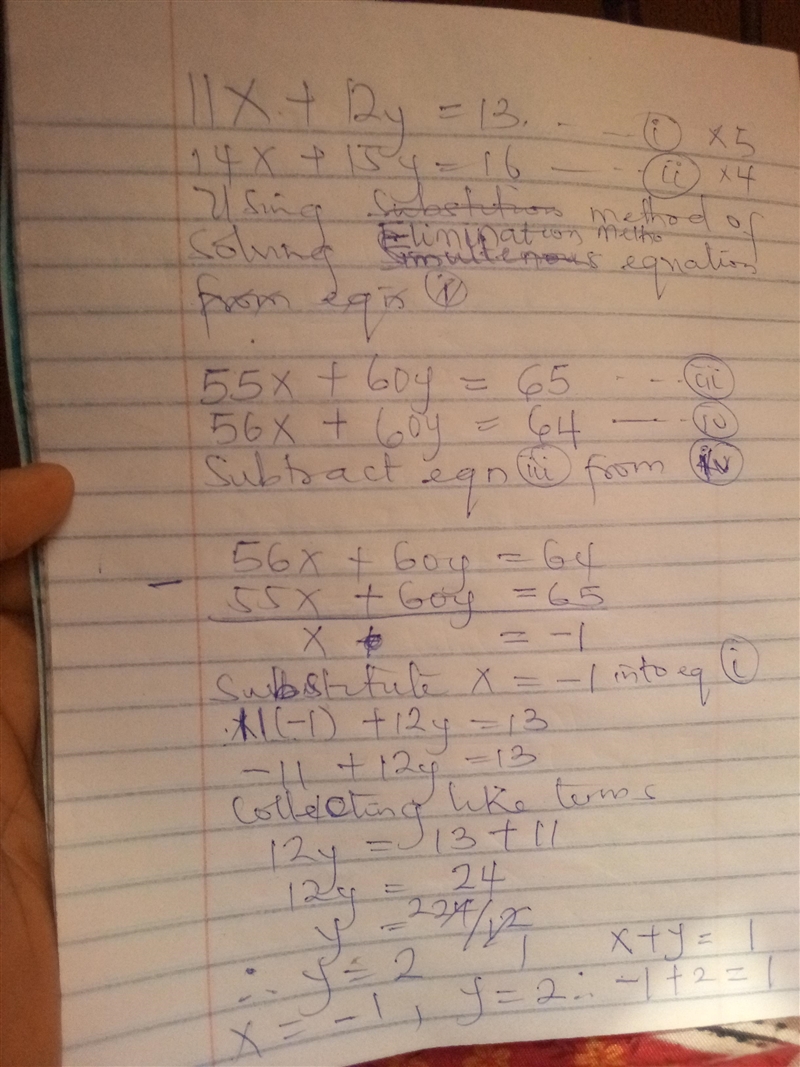 11x + 12y = 13. - -- (i) ×5
14x + 15y = 16 -- -- (ii) ×4
Using Substitution method of
Elimination metho
solving Simultenous equation
from eqn (i)
55x + 60y = 65 --- (iii)
56x + 60y = 64 -- (iv)
Subtract eqn (iii) from (iv)
56x + 60y = 64
- 55x + 60y = 65
x = -1
Substitute x = -1 into eq (i)
11(-1) + 12y = 13
-11 + 12y = 13
Collecting like terms
12y = 13 + 11
12y = 24
y = 224/12
1
∴ y = 2
x + y = 1
x = -1, y = 2 ∴ -1 + 2 = 1